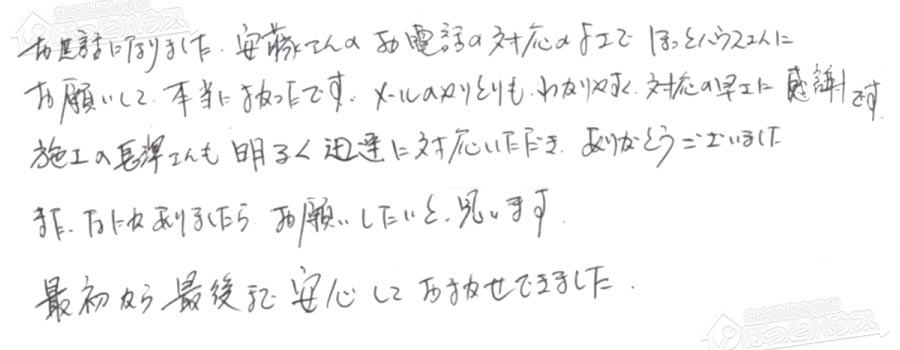 お世話になりました。安藤さんのお電話の対応のよさで ほっとハウスさんに
お願いして、本当によかったです。メールのやりとりも、わかりやすく、対応の早さに感謝です。
施工の長澤さんも明るく迅速に対応いただき、ありがとうございました
また、なにかありましたら、お願いしたいと、思います。
最初から最後まで安心しておまかせできました。
ほっとハウス